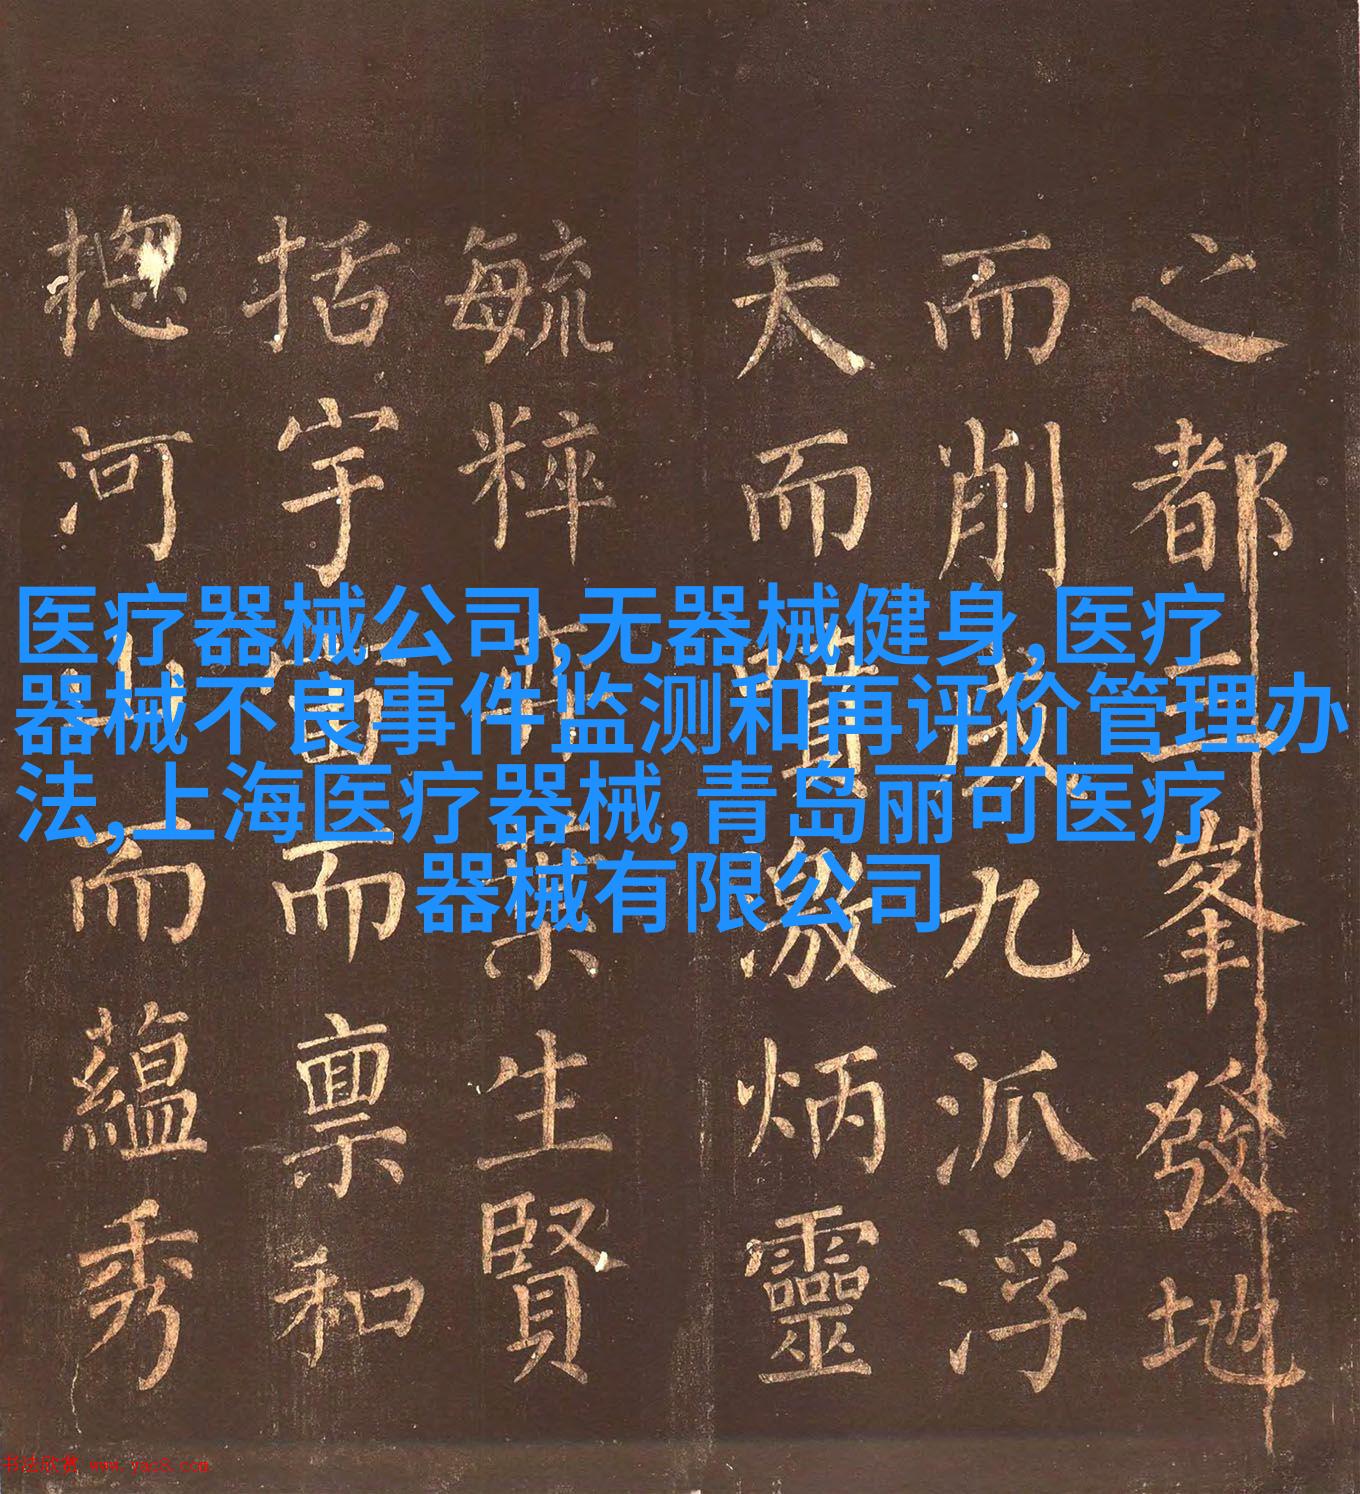 医疗器械公司,无器械健身,医疗
器械不良事件监测和再评价管理办
法,上海医疗器械,青岛丽可医疗
器械有限公司
之都三峯發地
而削成九派浮
天而噴激炳靈
毓粹生賢
括宇宙而稟和
捴河山而蘊秀
书法欣赏 www.yac8.com